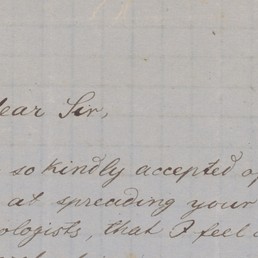 ear Sir,
so kindly accepted of
at spreading your
ologists, that I feel